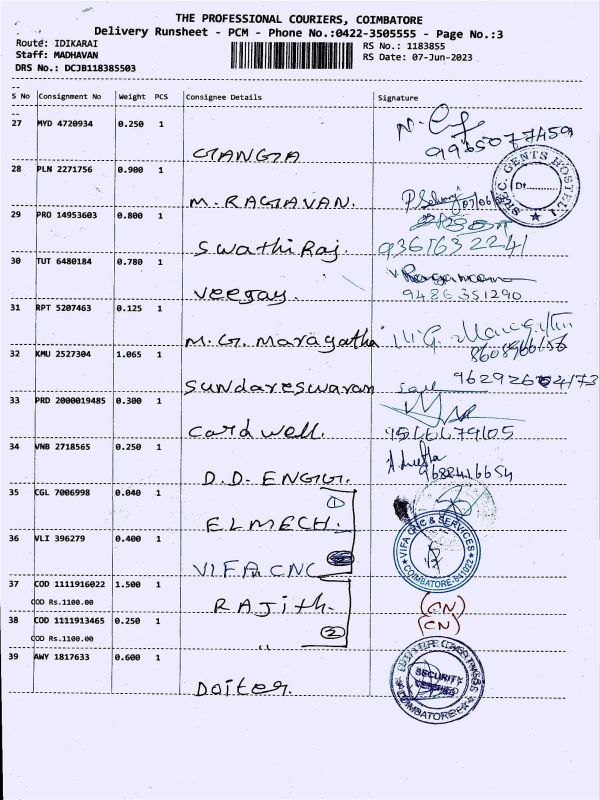 THE PROFESSIONAL COURIERS, COIMBATORE
Delivery Runsheet - PCM - Phone No.:0422-3505555 - Page No.:3
Route: IDIKARAI
RS No.: 1183855
Staff: MADHAVAN
RS Date: 07-Jun-2023
DRS No.: DCJB118385503
S No Consignment No Weight PCS Consignee Details Signature
27 MYD 4720934 0.250 1
GANGA
9965077459
28 PLN 2271756 0.900 1
M. RAGAVAN.
S.R.C. GENTS HOSTEL
Dt.
29 PRO 14953603 0.800 1
Swathi Raj.
9361632241
30 TUT 6480184 0.780 1
Veejay.
9486351290
31 RPT 5207463 0.125 1
M.G. Maragatha
32 KMU 2527304 1.065 1
Sundareswaran
33 PRD 2000019485 0.300 1
Cardwell.
34 VNB 2718565 0.250 1
D.D. ENGG.
9688416654
35 CGL 7006998 0.040 1
ELMECH.
1
36 VLI 396279 0.400 1
VIFA CNC
VIFA CNC & SERVICES
COIMBATORE-641022
37 COD 1111916022 1.500 1
COD Rs.1100.00
Rajith.
(CN)
2
38 COD 1111913465 0.250 1
COD Rs.1100.00
"
(CN)
39 AWY 1817633 0.600 1
Doiter.
SECURITY
COIMBATORE